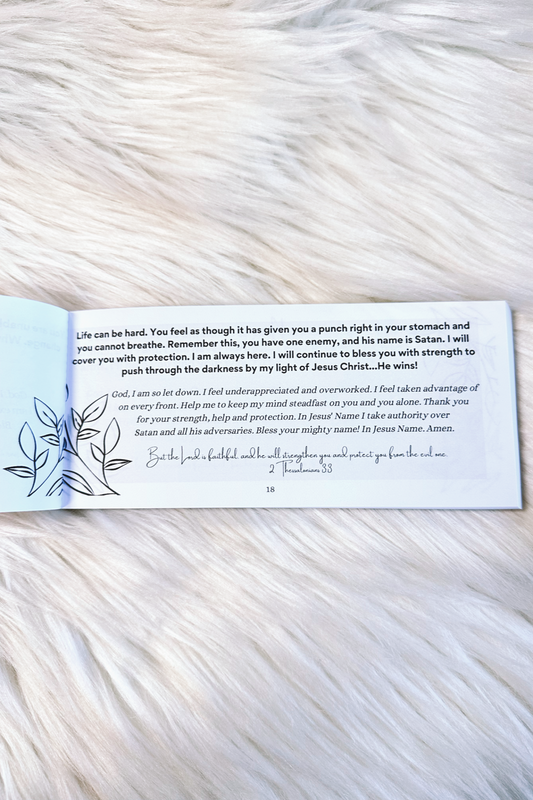 Life can be hard. You feel as though it has given you a punch right in your stomach and
you cannot breathe. Remember this, you have one enemy, and his name is Satan. I will
cover you with protection. I am always here. I will continue to bless you with strength to
push through the darkness by my light of Jesus Christ...He wins!
God, I am so let down. I feel underappreciated and overworked. I feel taken advantage of
on every front. Help me to keep my mind steadfast on you and you alone. Thank you
for your strength, help and protection. In Jesus' Name I take authority over
Satan and all his adversaries. Bless your mighty name! In Jesus Name. Amen.
But the Lord is faithful, and he will strengthen you and protect you from the evil one.
2 Thessalonians 3:3
18